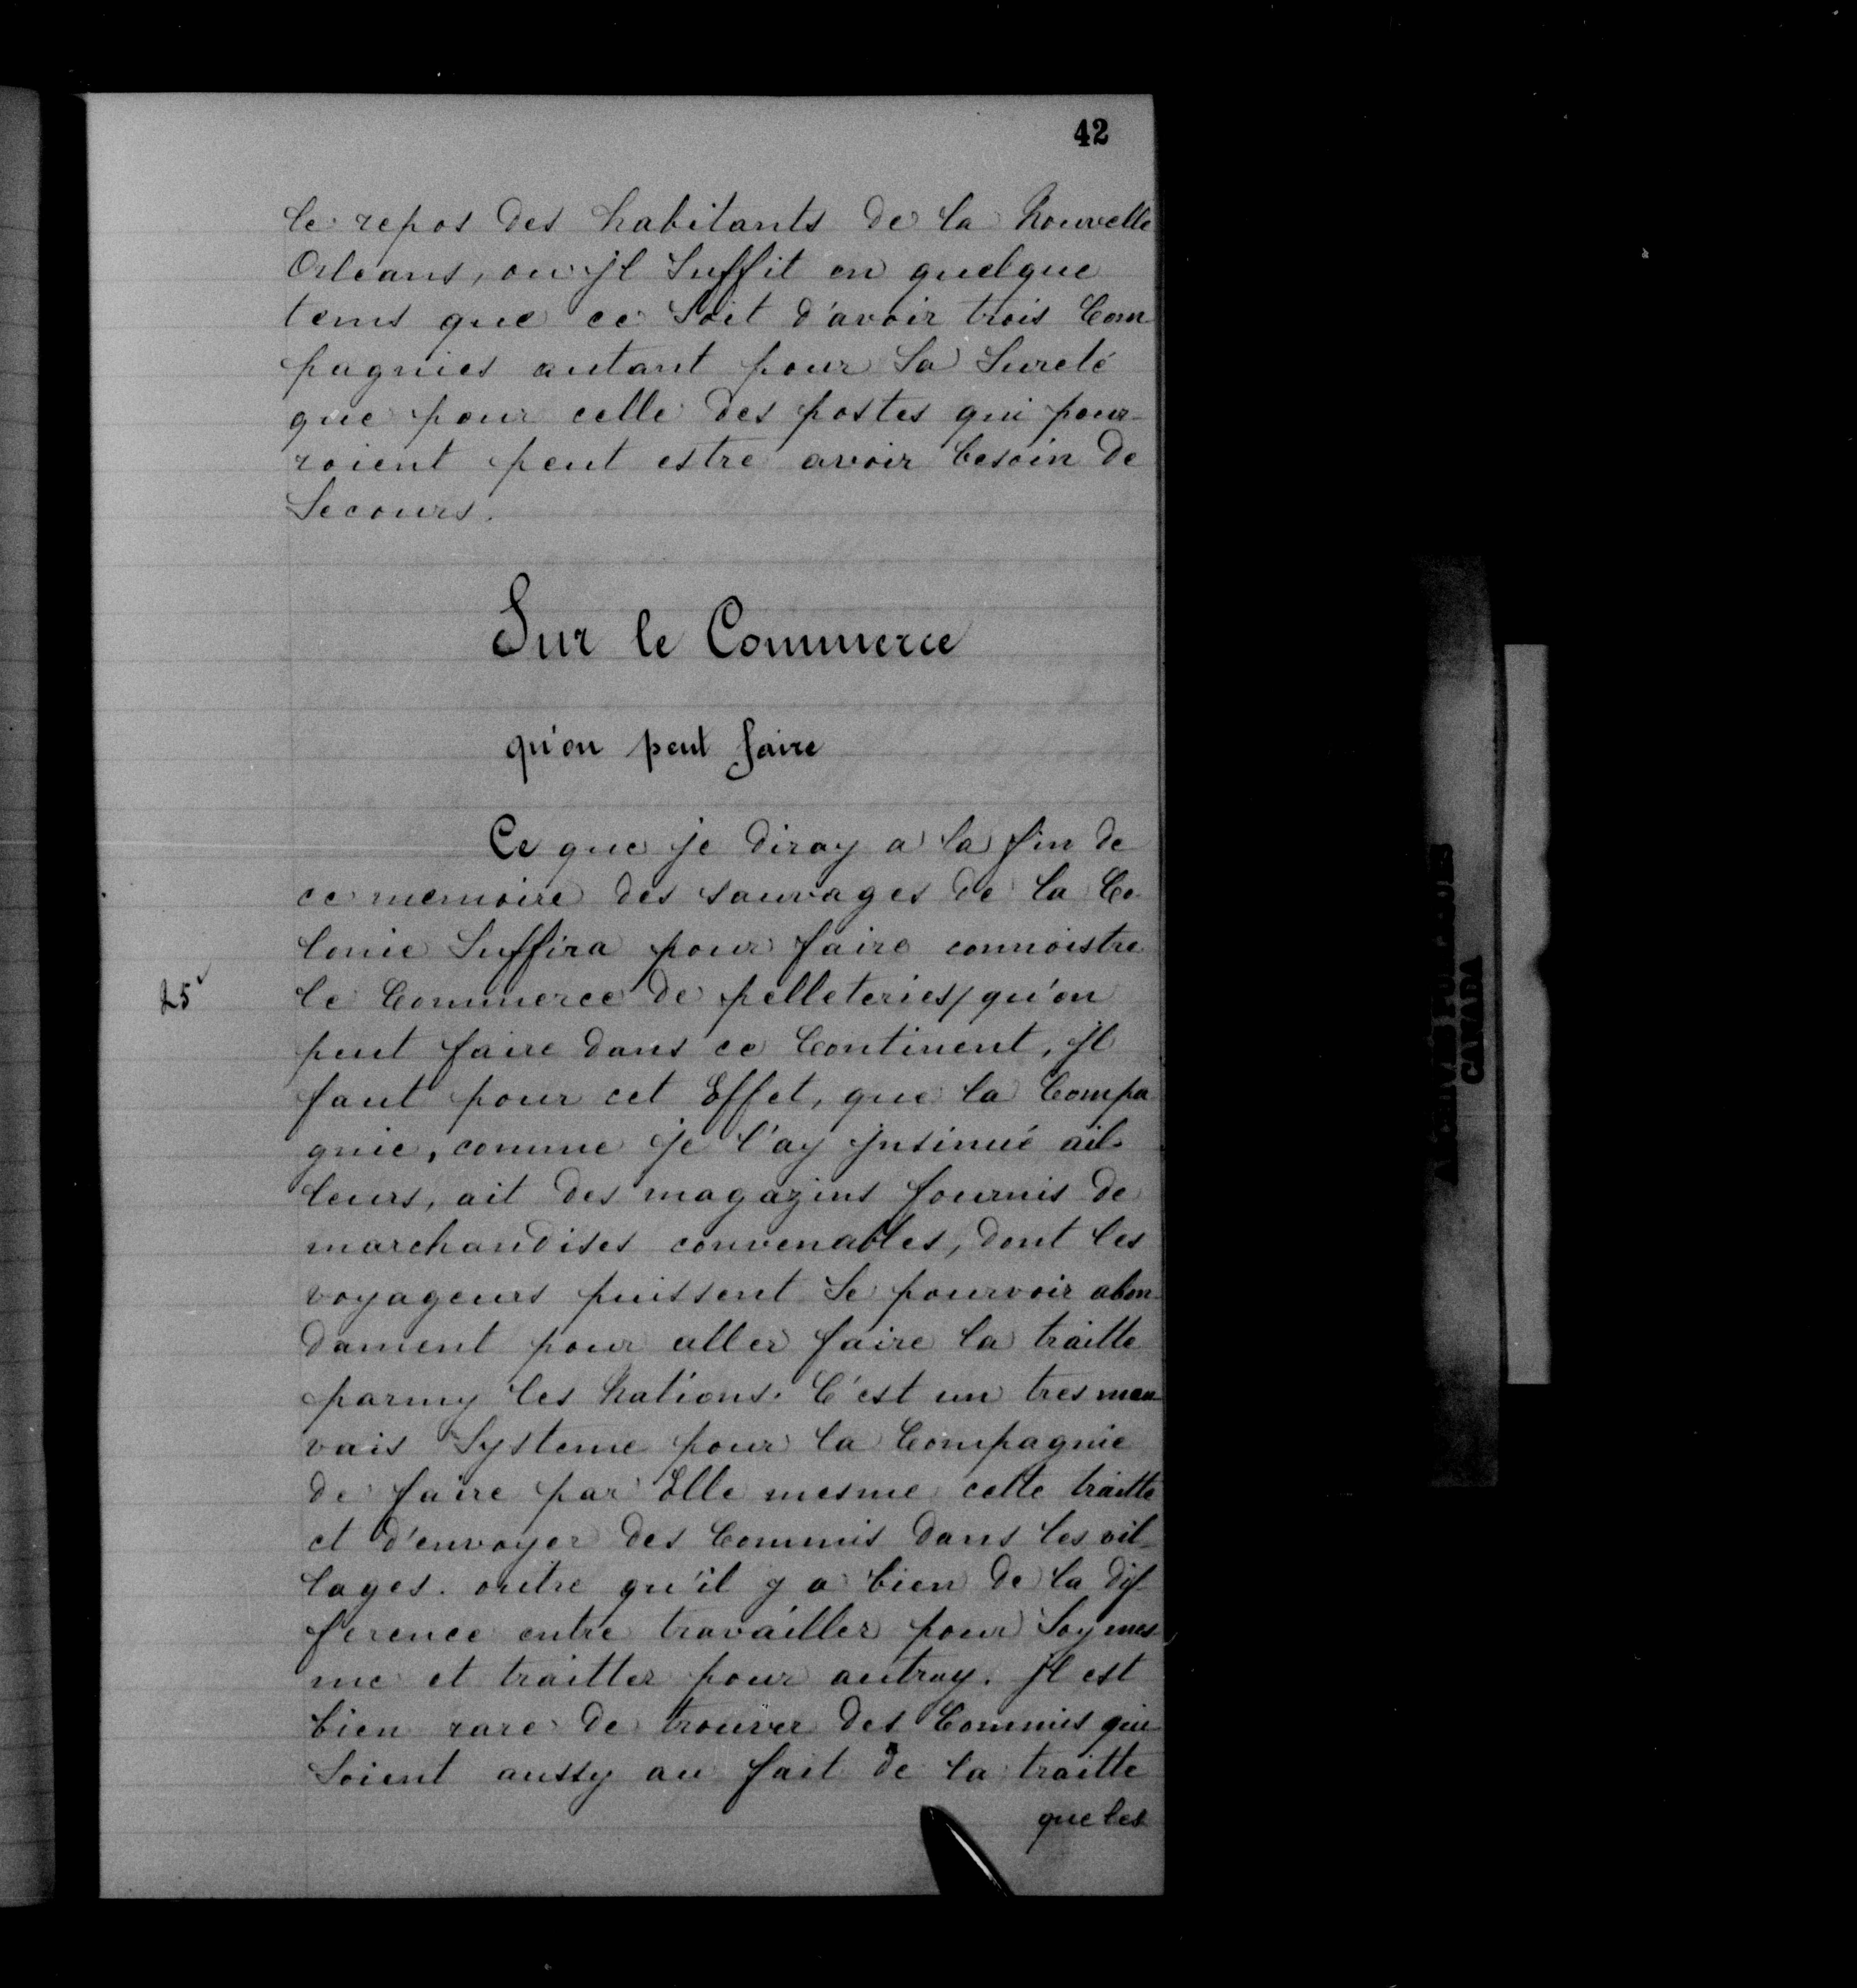 42
le repos des habitants de la Nouvelle
Orleans, ou jl Suffit en quelque
tems que ce Soit d'avoir trois Com
pagnies autant pour Sa Sureté
que pour celle des postes qui pour-
roient peut estre avoir besoin de
Secours.
Sur le Commerce
qu'on peut faire
Ce que je diray a la fin de
ce memoire des sauvages de la Co-
lonie Suffira pour faire connoistre
25
le Commerce de pelleteries/ qu'on
peut faire dans ce Continent, jl
faut pour cet Effet, que la Compa
gnie, comme je l'ay jnsinué ail-
leurs, ait des magazins fournis de
marchandises convenables, dont les
voyageurs puissent Se pourvoir abon-
dament pour aller faire la traitte
parmy les Nations. C'est un tres mau-
vais Systeme pour la Compagnie
de faire par Elle mesme cette traitte
et d'envoyer des Commis dans les vil-
lages. outre qu'il y a bien de la dif
ference entre travailler pour Soy mes-
me et traitter pour autruy. Jl est
bien rare de trouver des Commis qui
Soient aussy au fait de la traitte
que les
CANADA